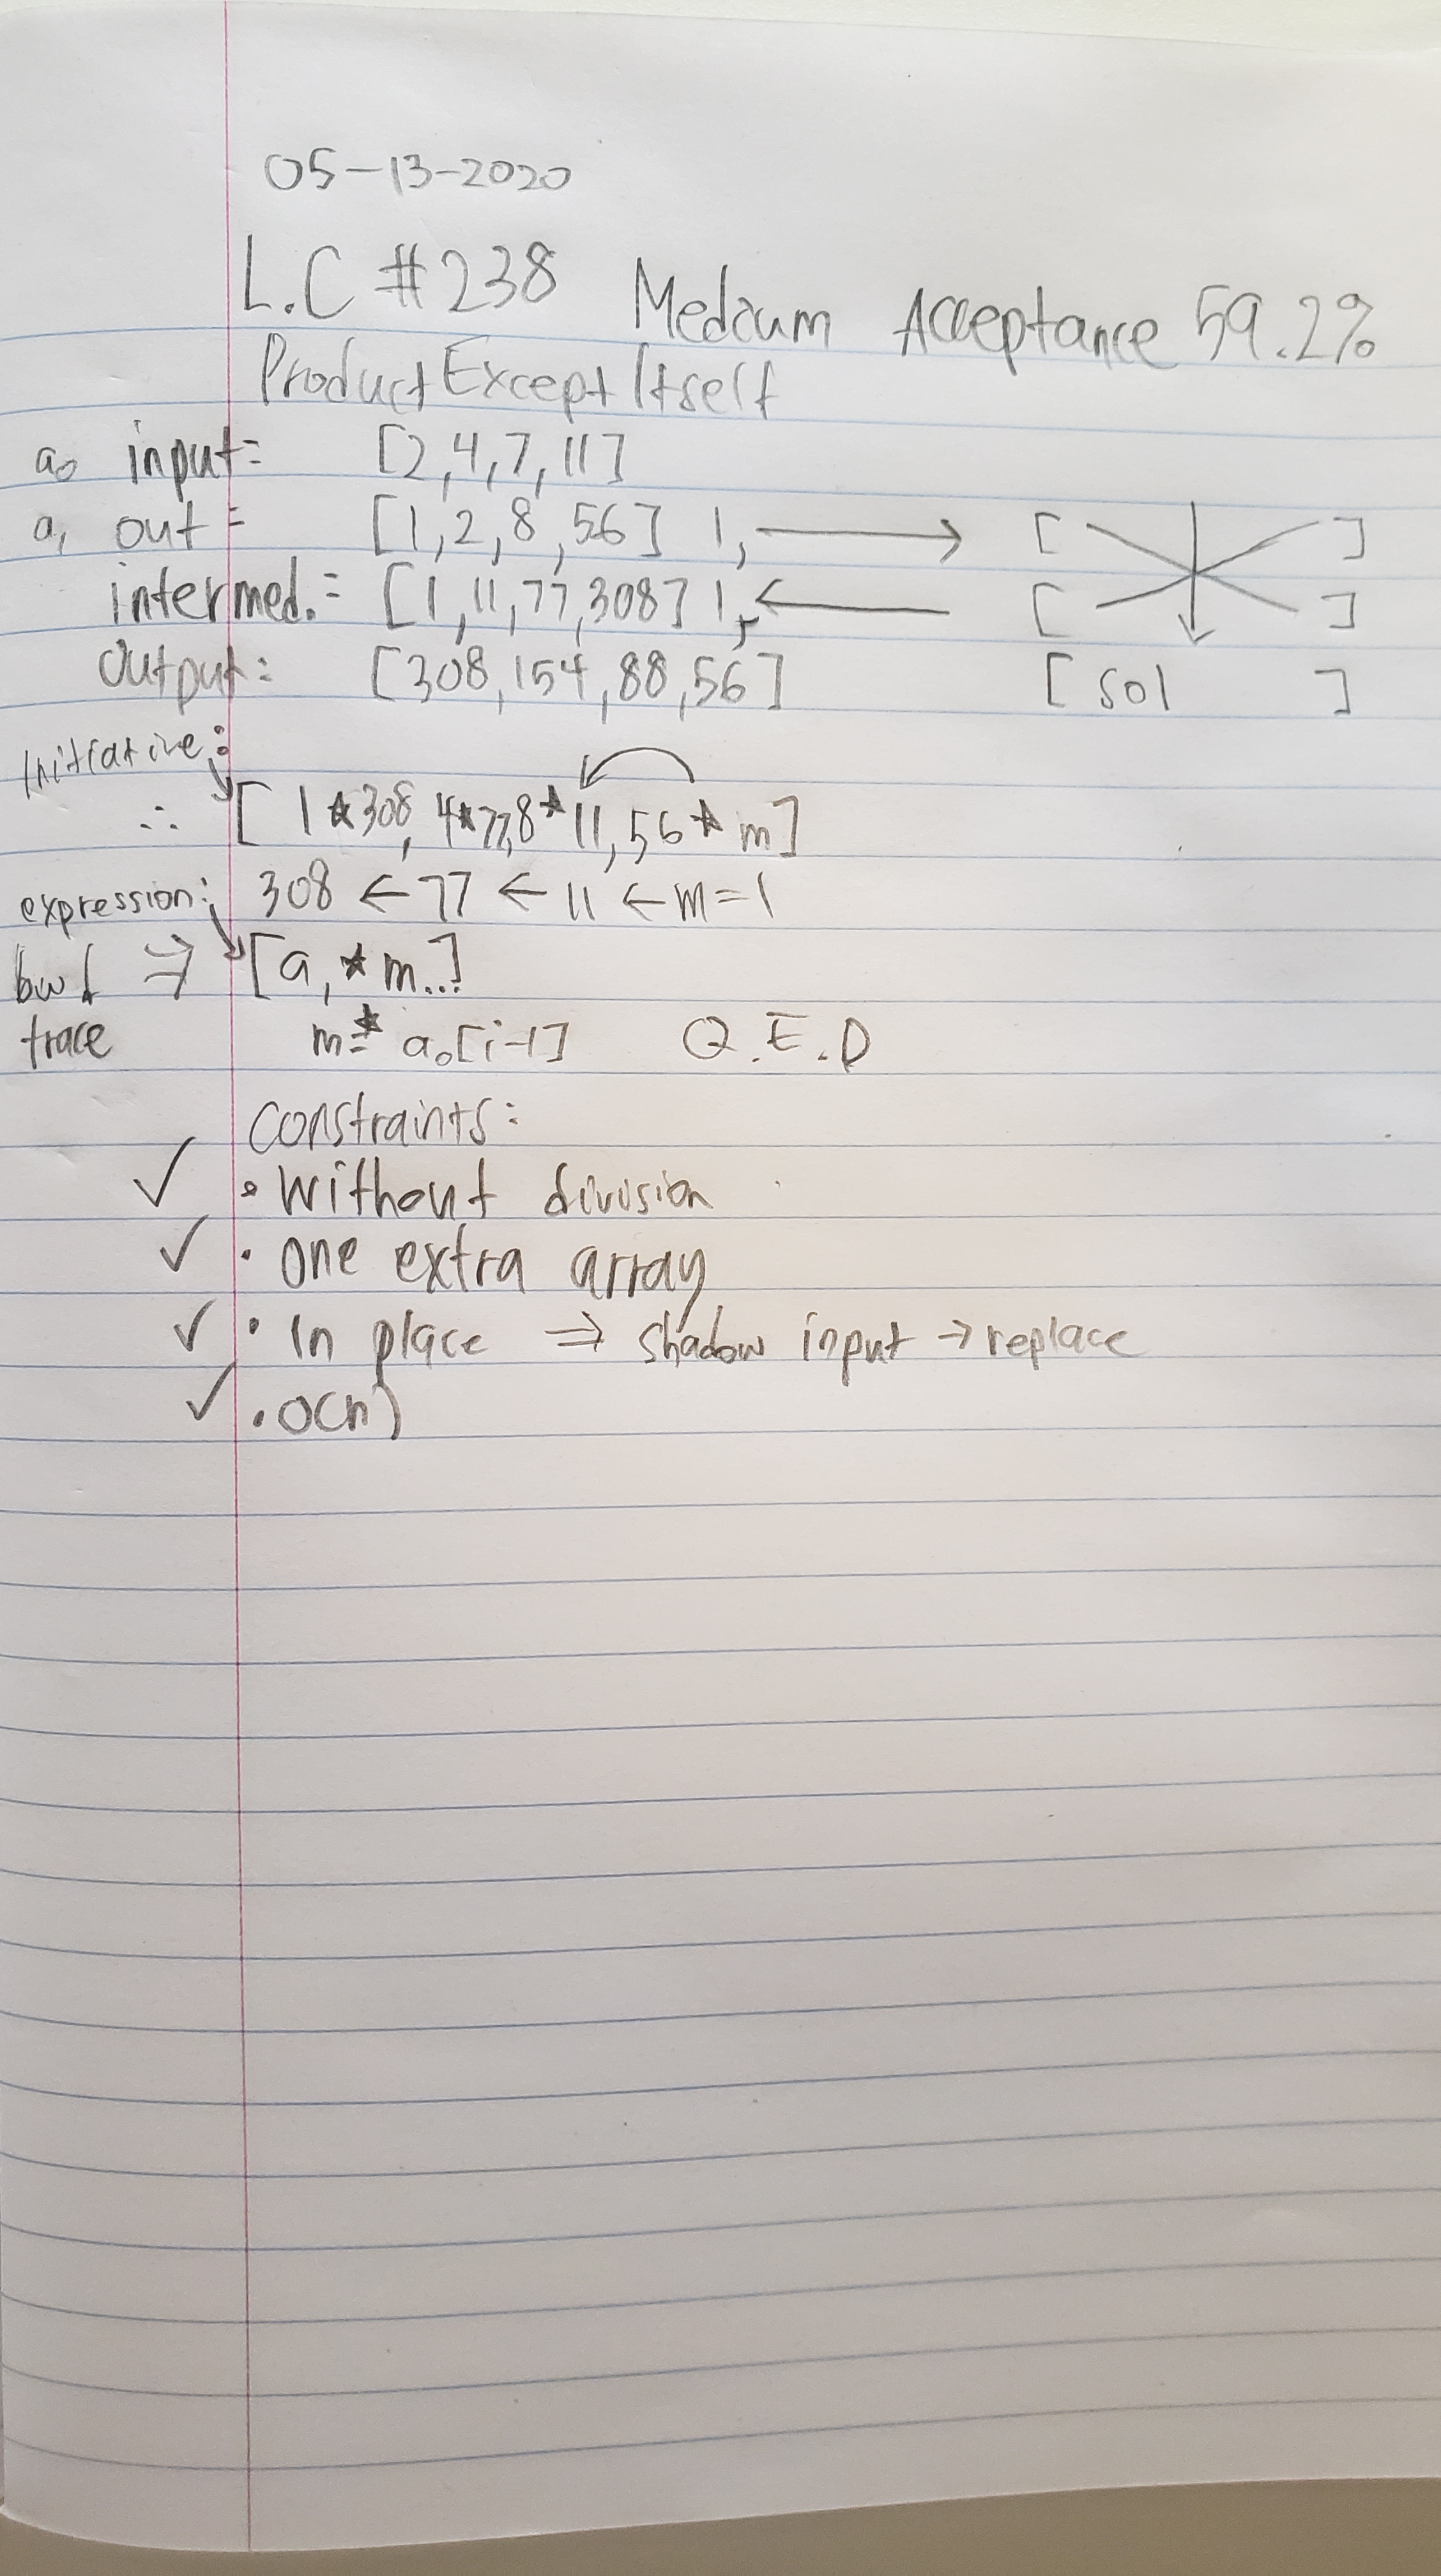 05-13-2020
L.C #238 Medium Acceptance 59.2%
Product Except Itself
a₀ input= [2,4,7,11]
a₁ out= [1,2,8,56] 1, → [ ]
intermed.= [1,11,77,308] 1, ← [ ]
Output: [308,154,88,56] [ sol ]
Initiative:
∴ [ 1*308, 4*77,8*11,56*m]
expression: 308 ← 77 ← 11 ← m=1
bwd ⇒ [a₁*m..]
trace m=* a₀[i-1] Q.E.D
Constraints:
✓ • Without division
✓ • One extra array
✓ • In place ⇒ shadow input → replace
✓ • O(n)